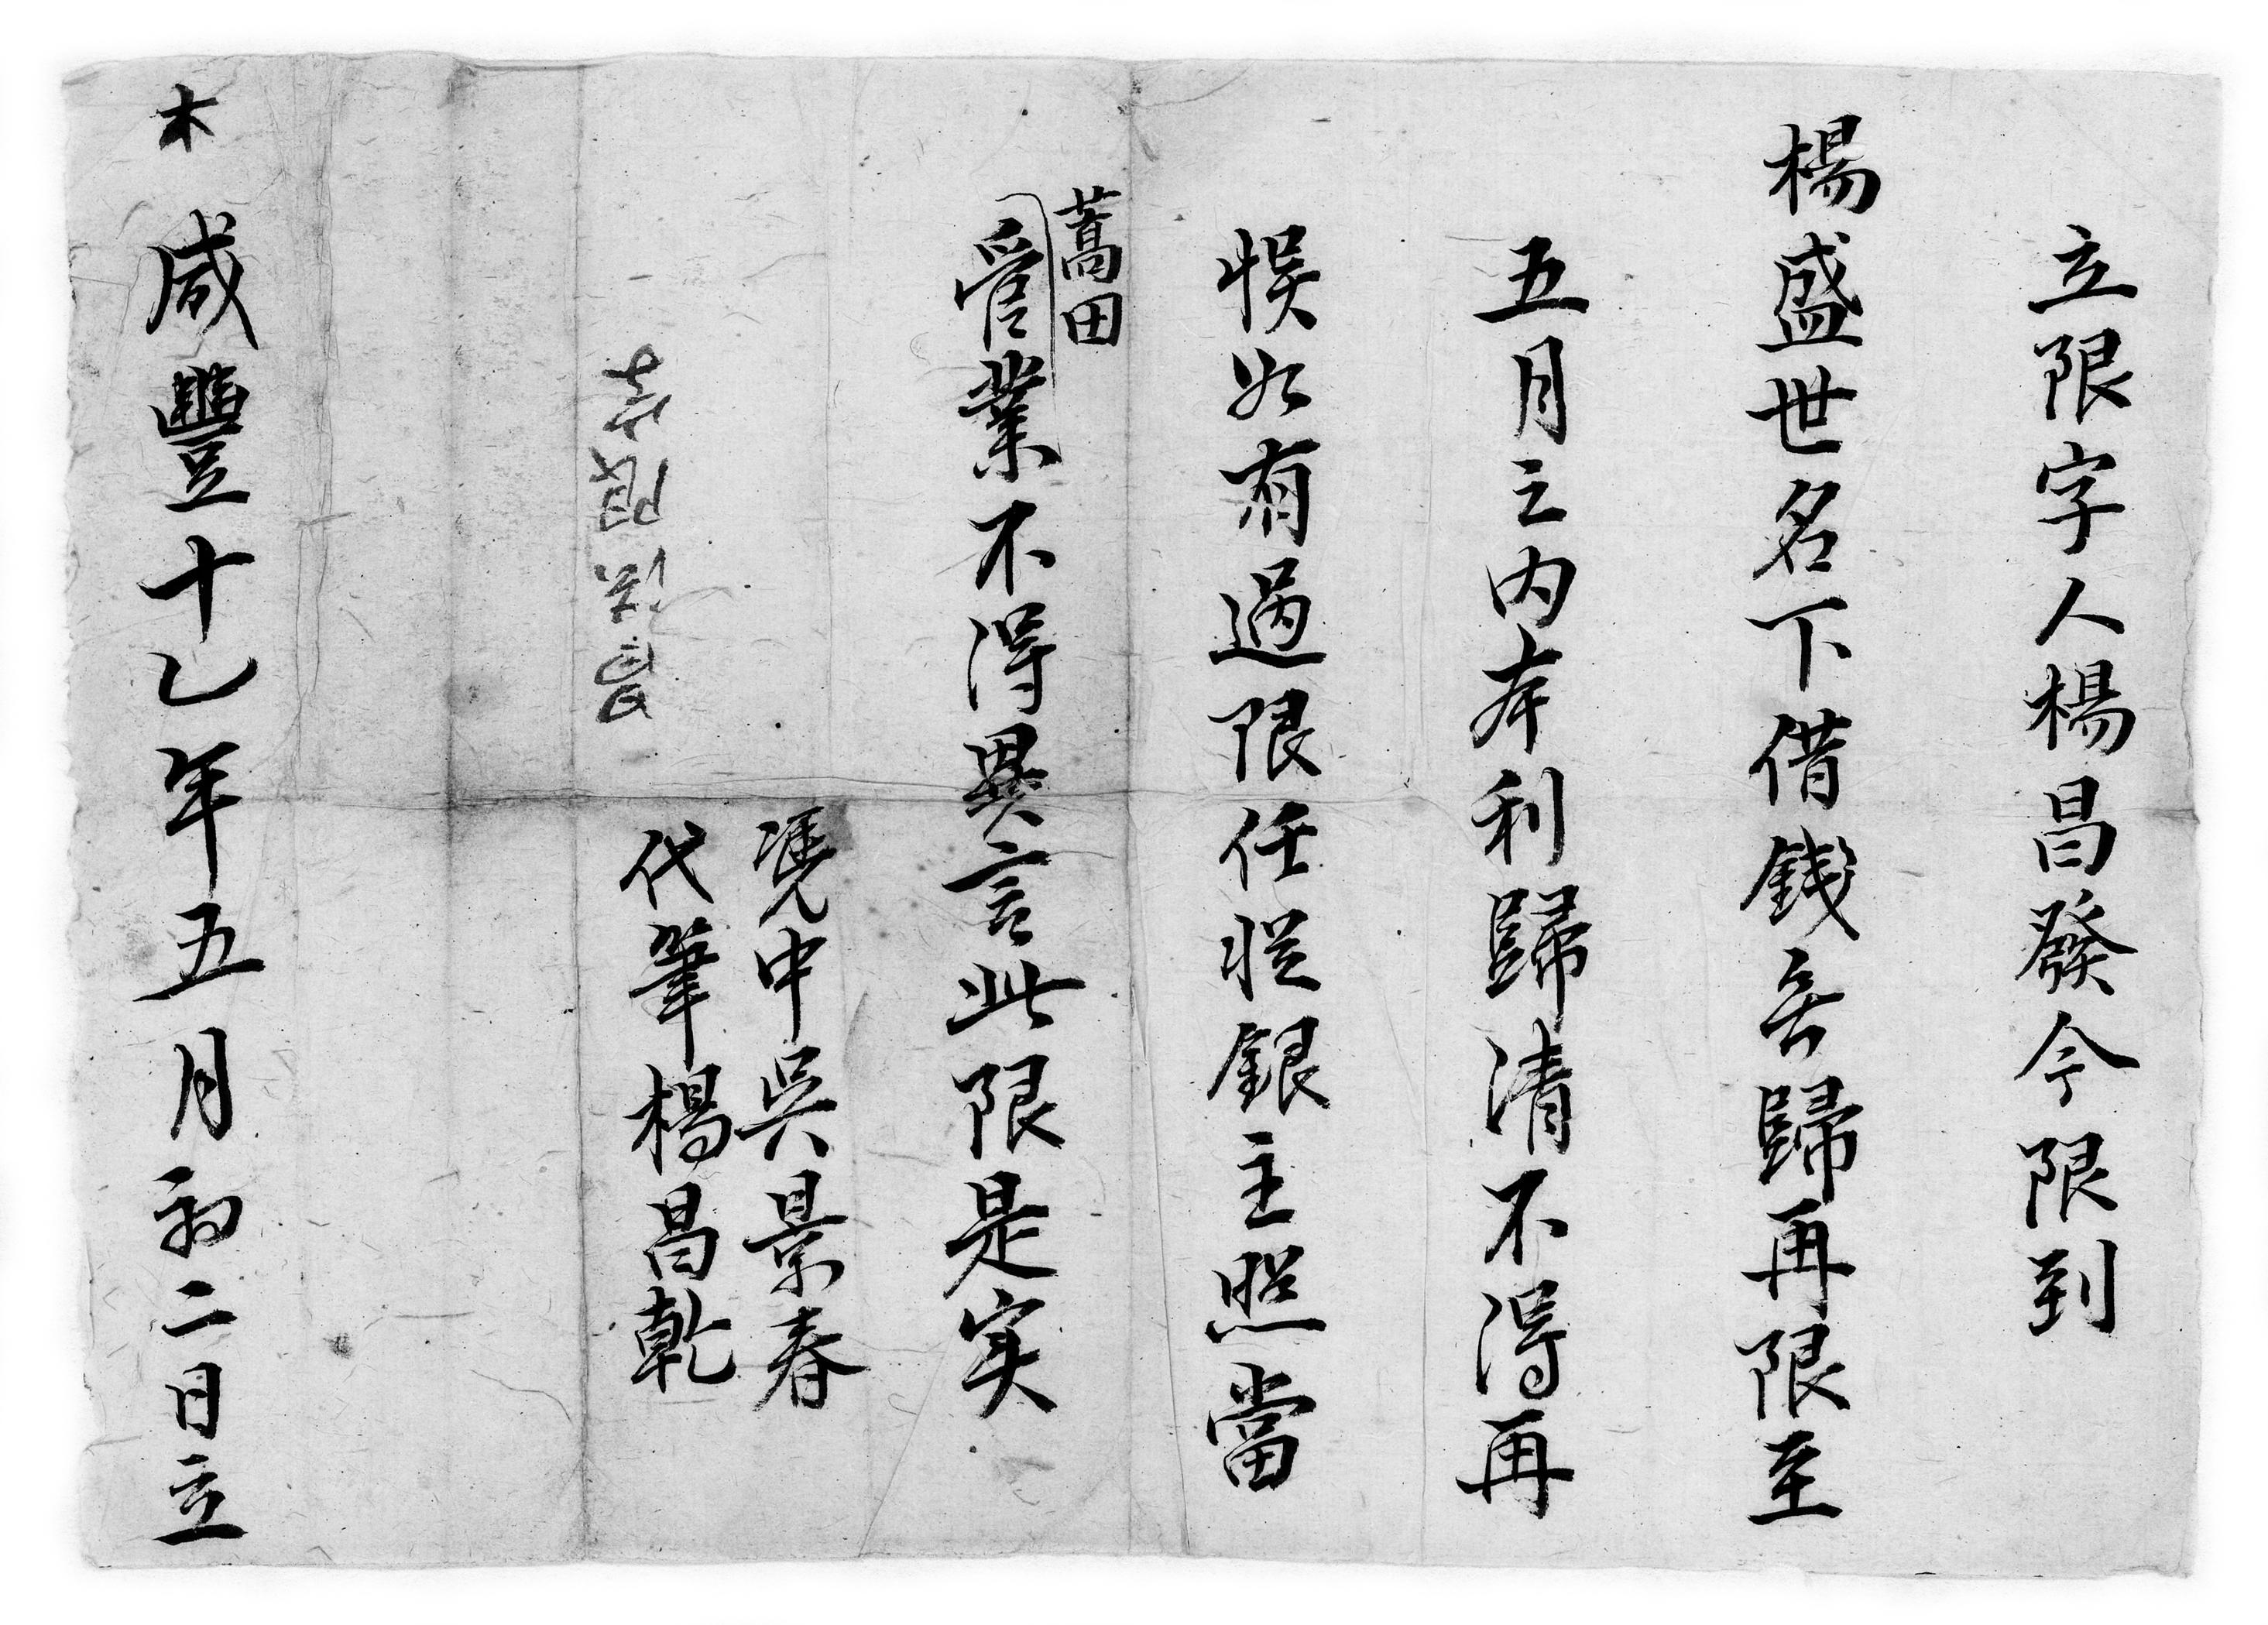 立限字人楊昌發今限到
楊盛世名下借錢無歸再限至
五月之内本利歸清不得再
悮如有過限任從銀主照當
蒿田
管業不得異言此限是实
憑中吳景春
代筆楊昌乾
咸豐十乙年五月初二日立